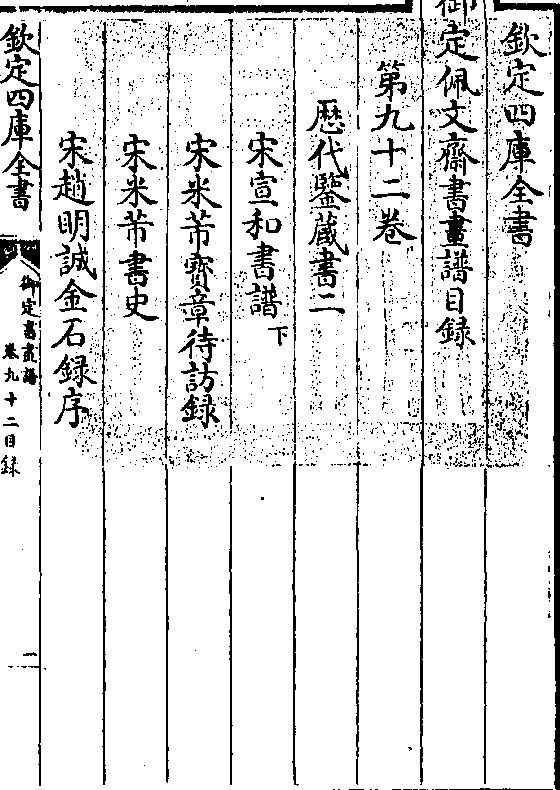 欽定四庫全書
御定佩文齋書畫譜目録
第九十二卷
歴代鑒藏書二
宋宣和書譜下
宋米芾寳章待訪録
宋米芾書史
宋趙明誠金石録序
欽定四庫全書
御定書畫譜
卷九十二目録
一